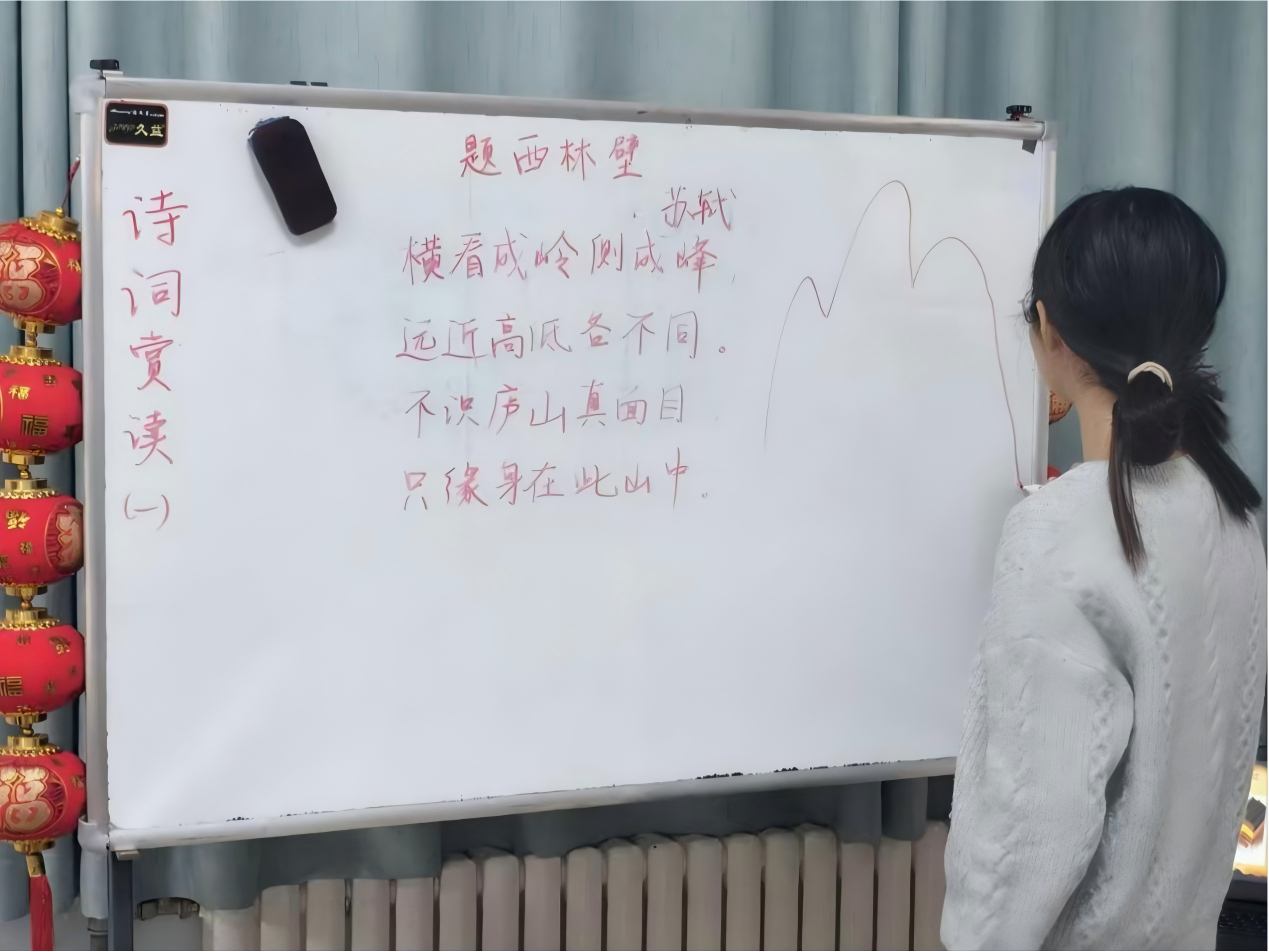 久益
诗词赏读(一)
题西林壁
苏轼
横看成岭侧成峰,
远近高低各不同。
不识庐山真面目
只缘身在此山中。
福
福
福
福
福